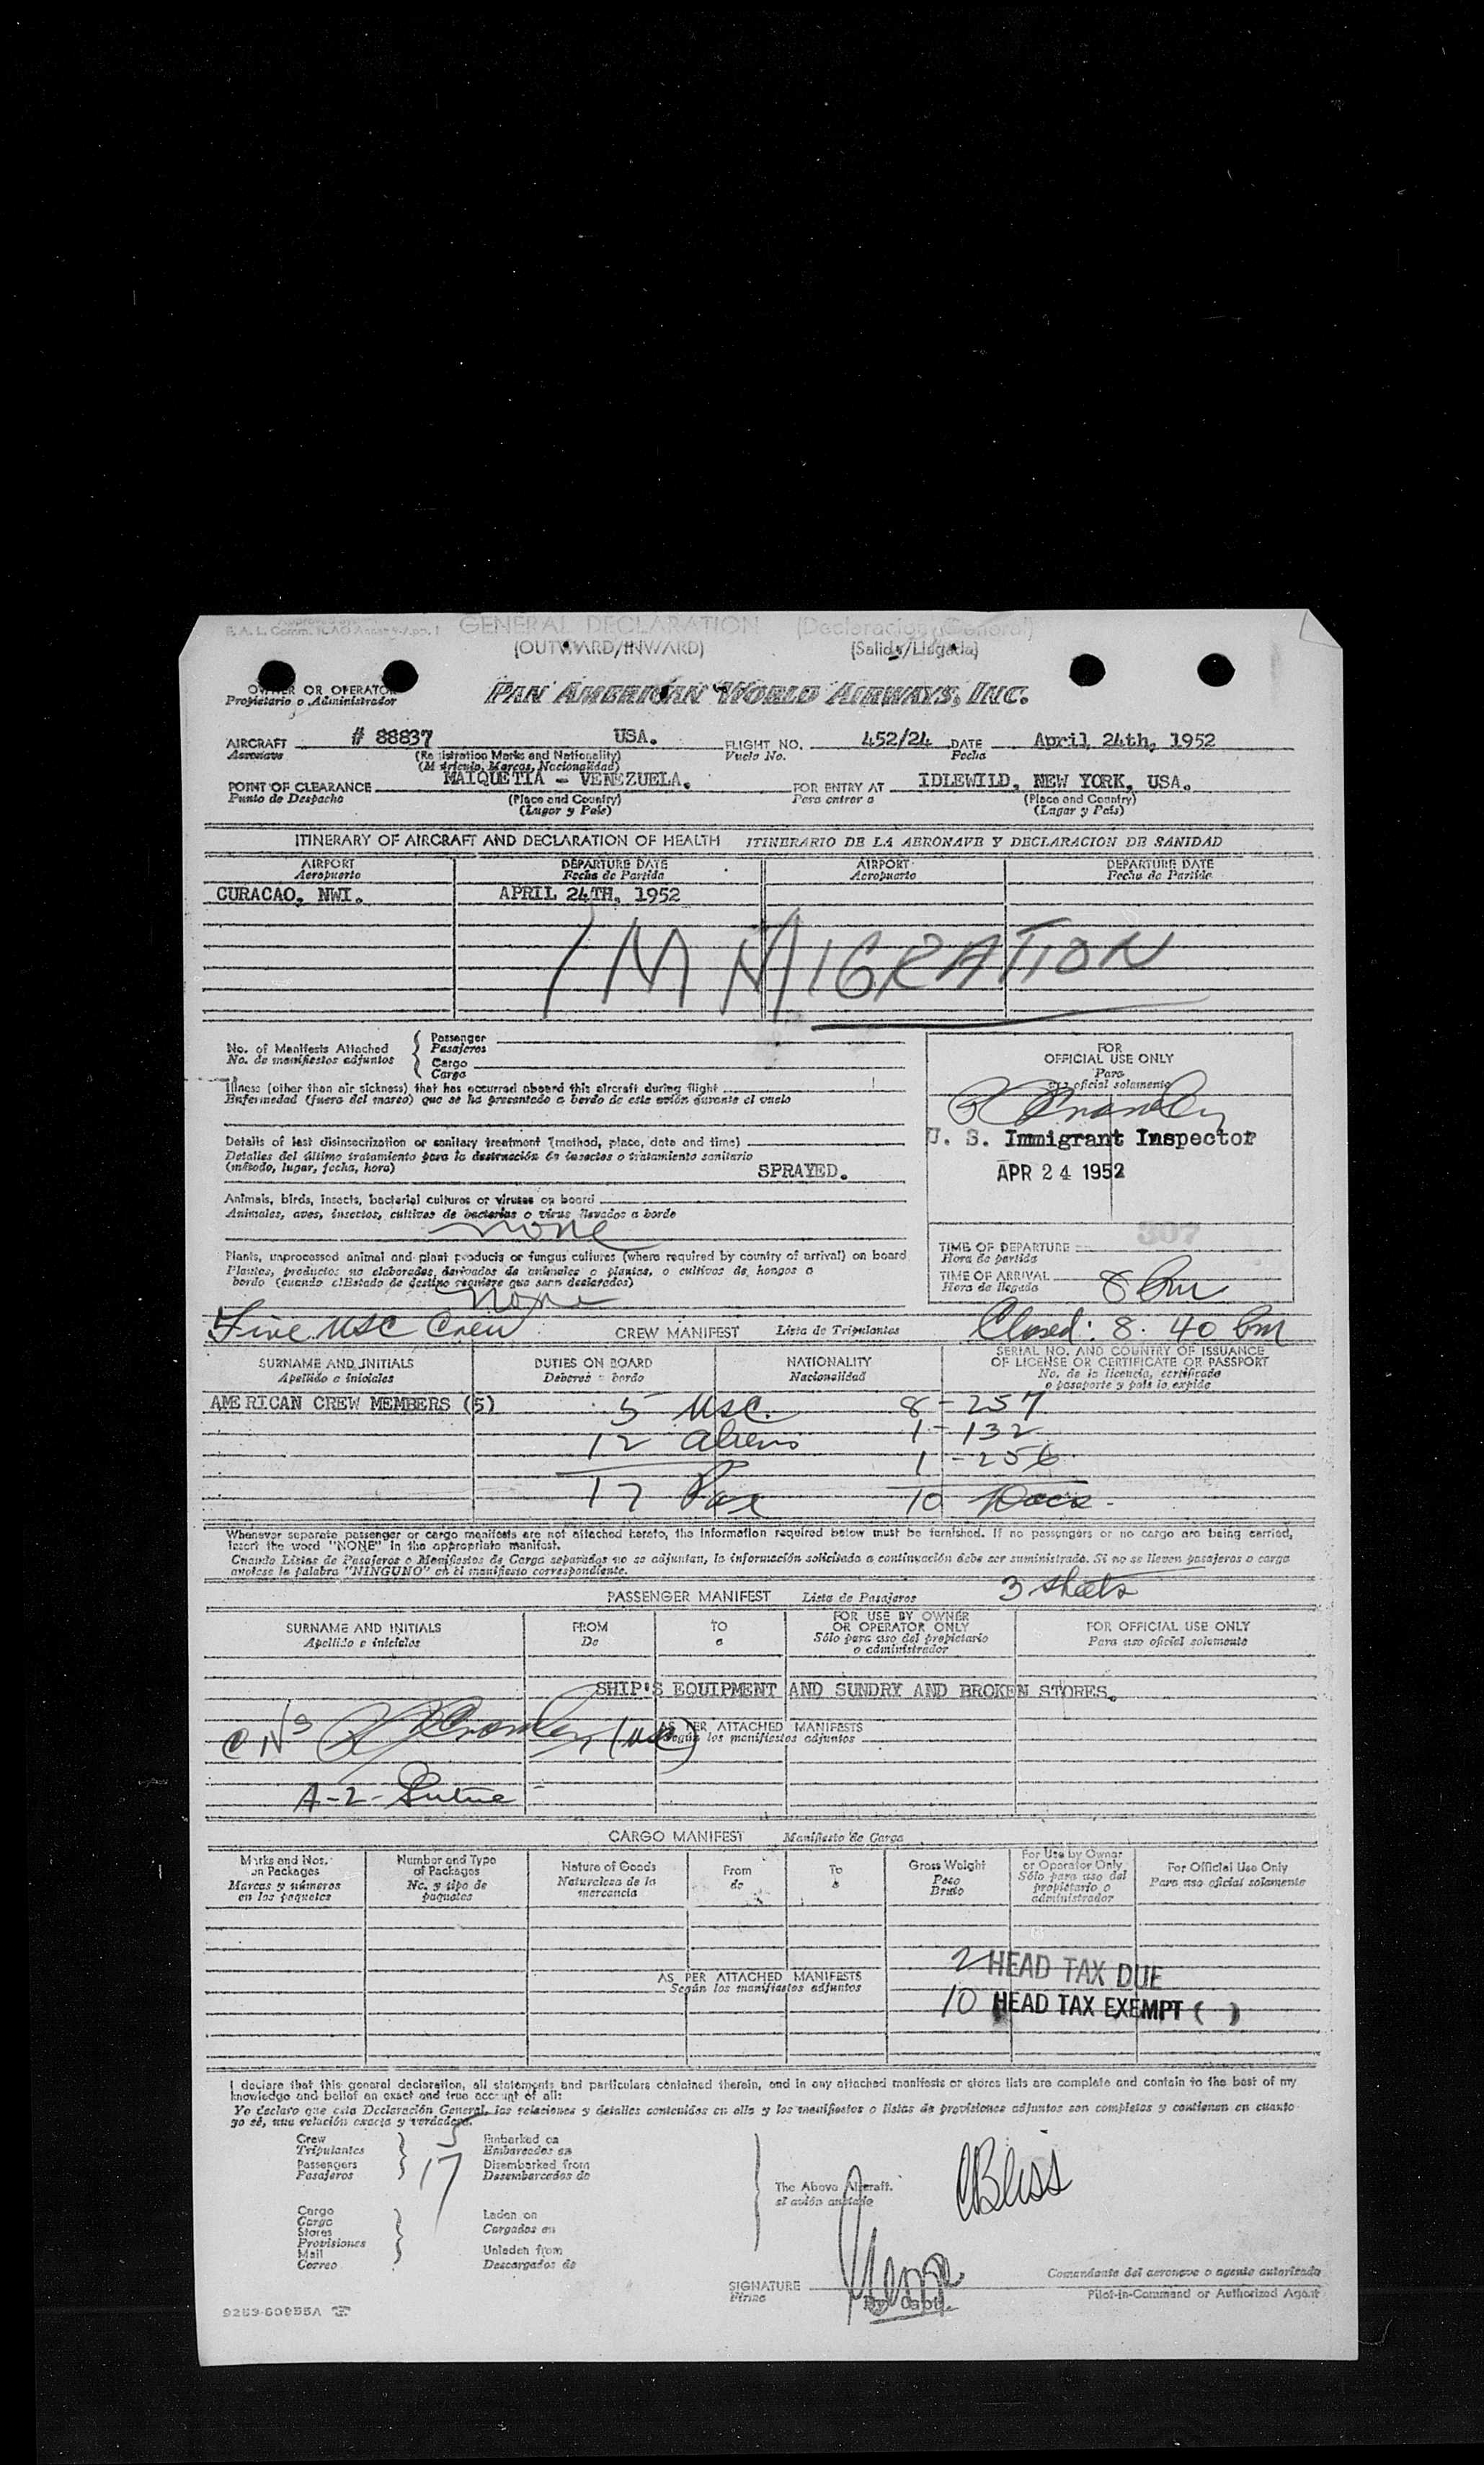 E. A. L. Comm. ICAO Annex 9-App. 1
GENERAL DECLARATION (Declaracion General)
(OUTWARD/INWARD) (Salida/Llegada)
OWNER OR OPERATOR
Propietario o Administrador
PAN AMERICAN WORLD AIRWAYS, INC.
AIRCRAFT # 88837 USA. FLIGHT NO. 452/24 DATE April 24th, 1952
Aeronave (Registration Marks and Nationality) Vuelo No. Fecha
(Matricula, Marcas, Nacionalidad)
POINT OF CLEARANCE MAIQUETIA - VENEZUELA. FOR ENTRY AT IDLEWILD, NEW YORK, USA.
Punto de Despacho (Place and Country) Para entrar a (Place and Country)
(Lugar y País) (Lugar y País)
ITINERARY OF AIRCRAFT AND DECLARATION OF HEALTH ITINERARIO DE LA AERONAVE Y DECLARACION DE SANIDAD
AIRPORT DEPARTURE DATE AIRPORT DEPARTURE DATE
Aeropuerto Fecha de Partida Aeropuerto Fecha de Partida
CURACAO, NWI. APRIL 24TH, 1952
IMMIGRATION
No. of Manifests Attached
No. de manifiestos adjuntos
Passenger
Pasajeros
Cargo
Carga
Illness (other than air sickness) that has occurred aboard this aircraft during flight
Enfermedad (fuera del mareo) que se ha presentado a bordo de este avión durante el vuelo
Details of last disinsectization or sanitary treatment (method, place, date and time)
Detalles del último tratamiento para la destrucción de insectos o tratamiento sanitario
(método, lugar, fecha, hora) SPRAYED.
Animals, birds, insects, bacterial cultures or viruses on board
Animales, aves, insectos, cultivos de bacterias o virus llevados a bordo
none
Plants, unprocessed animal and plant products or fungus cultures (where required by country of arrival) on board
Plantas, productos no elaborados derivados de animales o plantas, o cultivos de hongos a
bordo (cuando el Estado de destino requiere que sean declarados)
none
FOR
OFFICIAL USE ONLY
Para
uso oficial solamente
U. S. Immigrant Inspector
APR 24 1952
307
TIME OF DEPARTURE
Hora de partida
TIME OF ARRIVAL 8 Pm
Hora de llegada
Five USC Crew CREW MANIFEST Lista de Tripulantes Closed: 8.40 Pm
SURNAME AND INITIALS DUTIES ON BOARD NATIONALITY SERIAL NO. AND COUNTRY OF ISSUANCE
OF LICENSE OR CERTIFICATE OR PASSPORT
Apellido e iniciales Deberes a bordo Nacionalidad No. de la licencia, certificado
o pasaporte y país lo expide
AMERICAN CREW MEMBERS (5) 5 USC. 8 - 257
12 aliens 1 - 132
1 - 256
17 Pax 10 Docs.
Whenever separate passenger or cargo manifests are not attached hereto, the information required below must be furnished. If no passengers or no cargo are being carried,
insert the word "NONE" in the appropriate manifest.
Cuando Listas de Pasajeros o Manifiestos de Carga separados no se adjuntan, la información solicitada a continuación debe ser suministrada. Si no se lleven pasajeros o carga
anotese la palabra "NINGUNO" en el manifiesto correspondiente.
PASSENGER MANIFEST Lista de Pasajeros 3 sheets
SURNAME AND INITIALS FROM TO FOR USE BY OWNER
OR OPERATOR ONLY FOR OFFICIAL USE ONLY
Apellido e iniciales De a Sólo para uso del propietario
o administrador Para uso oficial solamente
SHIP'S EQUIPMENT AND SUNDRY AND BROKEN STORES.
AS PER ATTACHED MANIFESTS
Según los manifiestos adjuntos
A-2-
CARGO MANIFEST Manifiesto de Carga
Marks and Nos.
on Packages
Marcas y números
en los paquetes
Number and Type
of Packages
No. y tipo de
paquetes
Nature of Goods
Naturaleza de la
mercancia
From
de
To
a
Gross Weight
Peso
Bruto
For Use by Owner
or Operator Only
Sólo para uso del
propietario o
administrador
For Official Use Only
Para uso oficial solamente
2 HEAD TAX DUE
AS PER ATTACHED MANIFESTS
Según los manifiestos adjuntos
10 HEAD TAX EXEMPT ( )
I declare that this general declaration, all statements and particulars contained therein, and in any attached manifests or stores lists are complete and contain to the best of my
knowledge and belief an exact and true account of all:
Yo declaro que esta Declaración General, las relaciones y detalles contenidos en ella y los manifiestos o listas de provisiones adjuntos son completos y contienen en cuanto
yo sé, una relación exacta y verdadera.
Crew 5 Embarked on
Tripulantes Embarcados en
Passengers 17 Disembarked from
Pasajeros Desembarcados de
The Above Aircraft.
el avión anotado
CBliss
Cargo
Carga
Stores
Provisiones
Mail
Correo
Laden on
Cargados en
Unladen from
Descargados de
SIGNATURE
Firma
Comandante del aeronave o agente autorizado
Pilot-in-Command or Authorized Agent
9253-60955A